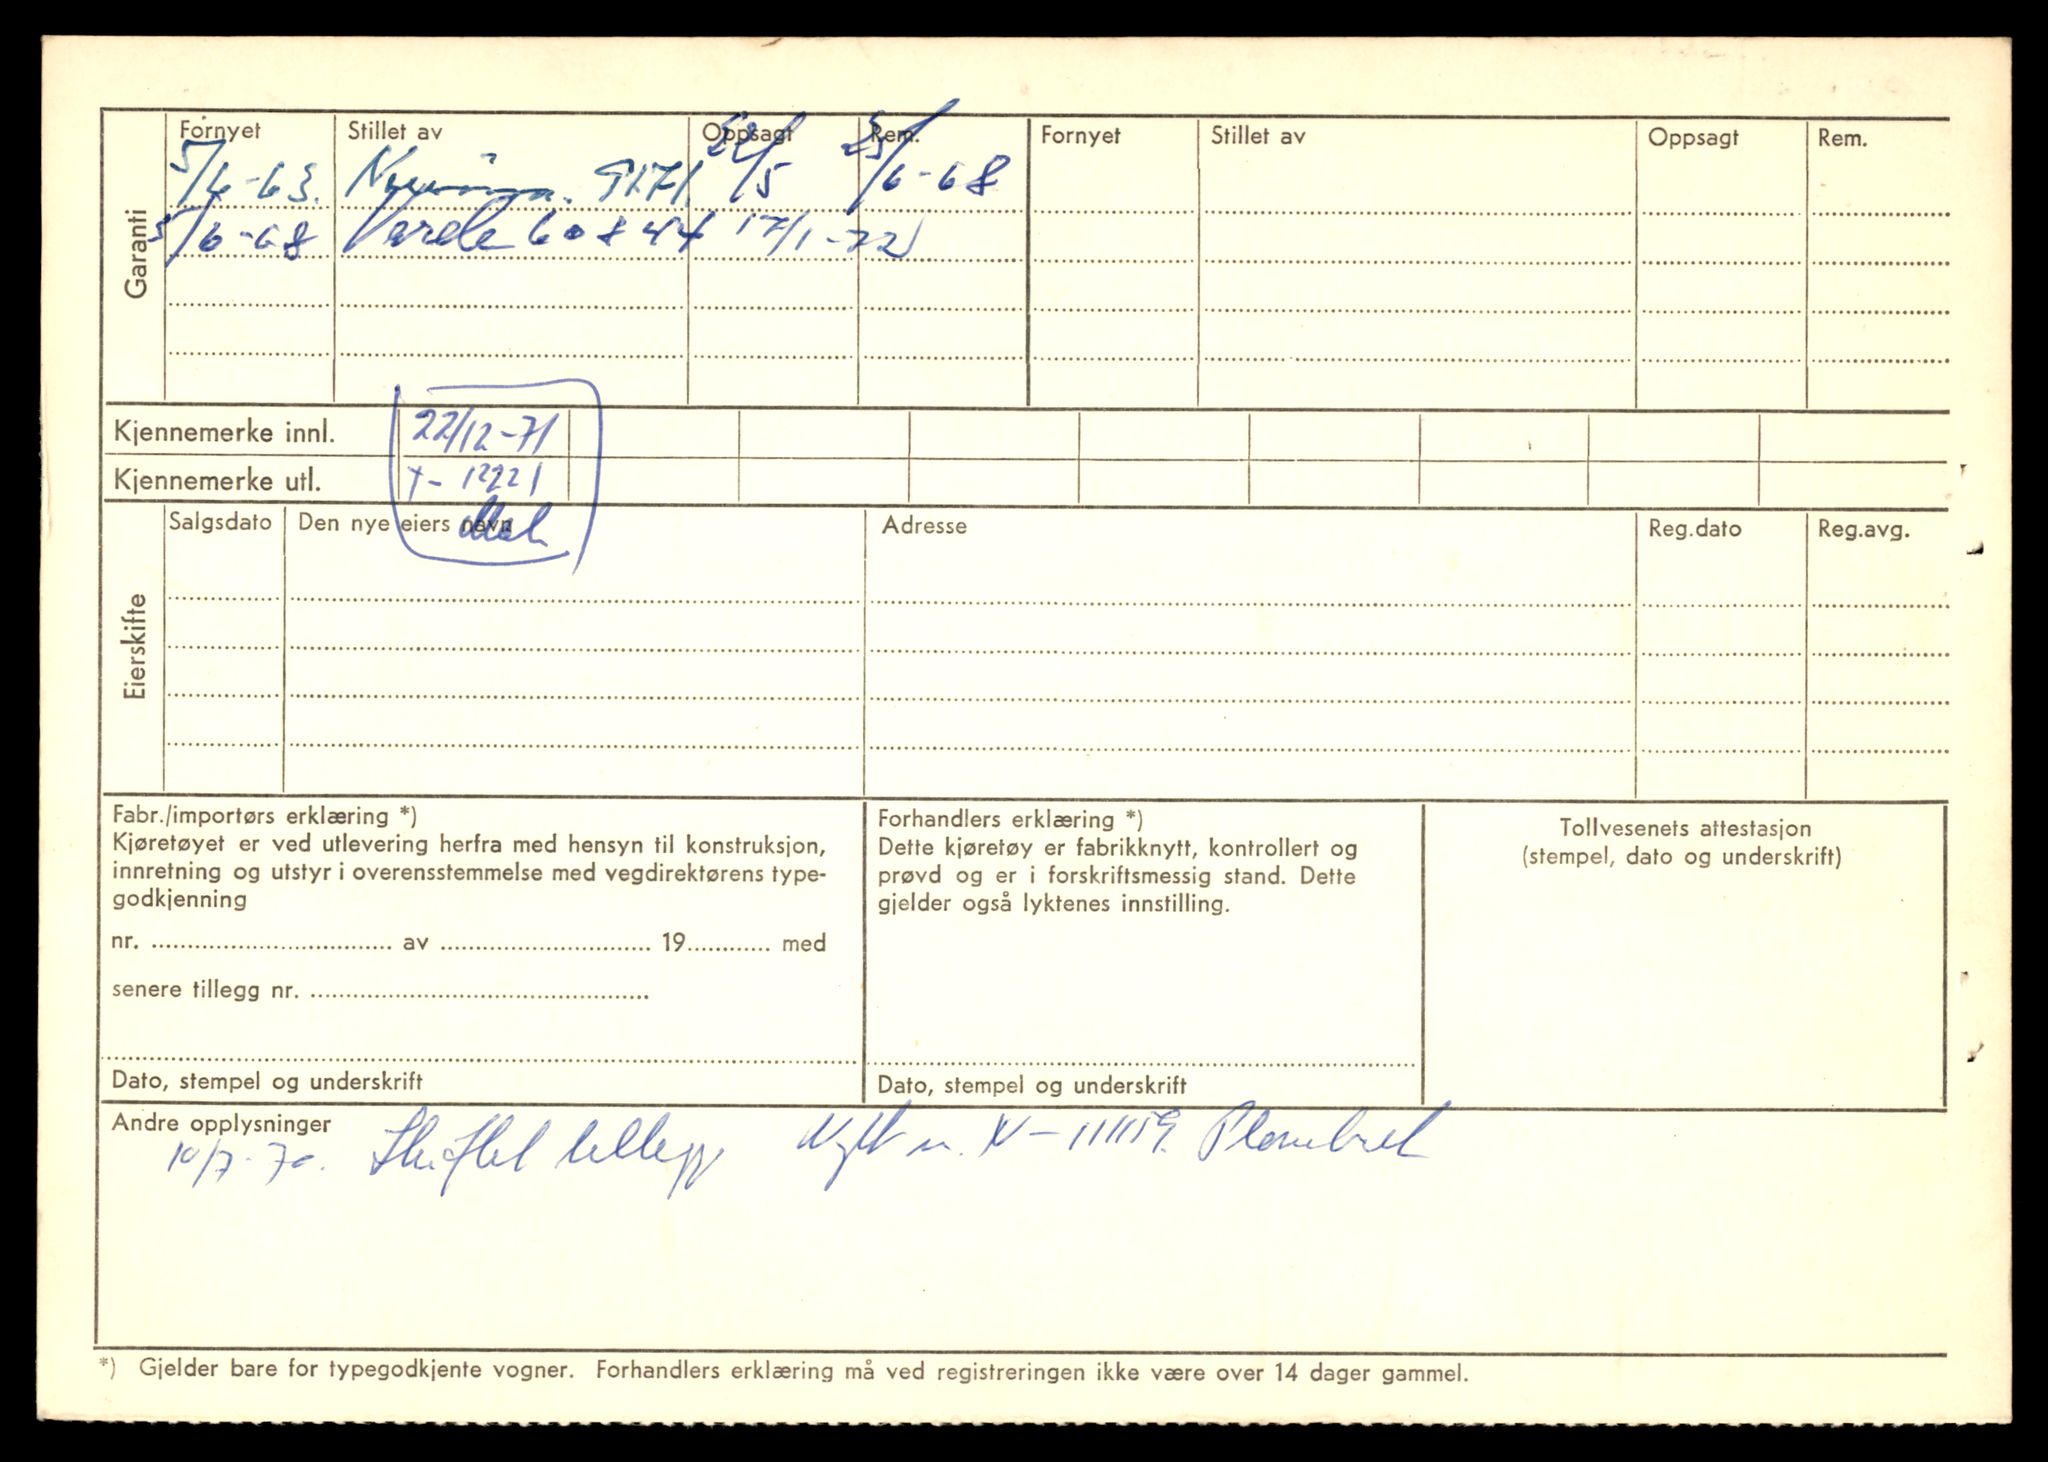 Garanti
Fornyet Stillet av Oppsagt Rem. Fornyet Stillet av Oppsagt Rem.
5/6-63. 91571 22/5 25/6-68
5/6-68 Varde 60844 17/1-72
Kjennemerke innl. 22/12-71
Kjennemerke utl. T- 12221
Eierskifte
Salgsdato Den nye eiers navn Adresse Reg.dato Reg.avg.
Fabr./importørs erklæring *)
Kjøretøyet er ved utlevering herfra med hensyn til konstruksjon,
innretning og utstyr i overensstemmelse med vegdirektørens type-
godkjenning
nr. .............................. av .......................... 19........... med
senere tillegg nr. ..........................................
Dato, stempel og underskrift
Forhandlers erklæring *)
Dette kjøretøy er fabrikknytt, kontrollert og
prøvd og er i forskriftsmessig stand. Dette
gjelder også lyktenes innstilling.
Dato, stempel og underskrift
Tollvesenets attestasjon
(stempel, dato og underskrift)
Andre opplysninger
10/7-70. Skiftet Nytt n. Plombert
*) Gjelder bare for typegodkjente vogner. Forhandlers erklæring må ved registreringen ikke være over 14 dager gammel.